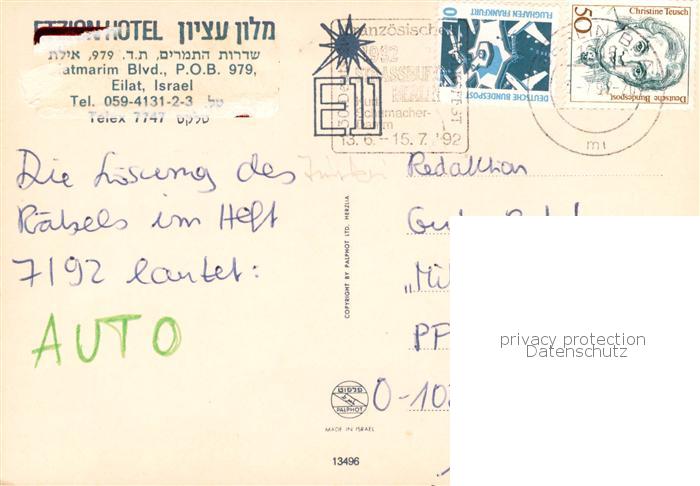 ETZION HOTEL מלון עציון
שדרות התמרים, ת.ד. 979, אילת
Hatmarim Blvd., P.O.B. 979,
Eilat, Israel
Tel. 059-4131-2-3 טל.
Telex 7747 טלקס
13.6.–15.7.'92
FLUGHAFEN FRANKFURT
DEUTSCHE BUNDESPOST
50
Christine Teusch
Deutsche Bundespost
Die Lösung des
Rätsels im Heft
7/92 lautet:
AUTO
Redaktion
PP
O-10
COPYRIGHT BY PALPHOT LTD. HERZLIA
פלפוט
PALPHOT
MADE IN ISRAEL
13496
privacy protection
Datenschutz